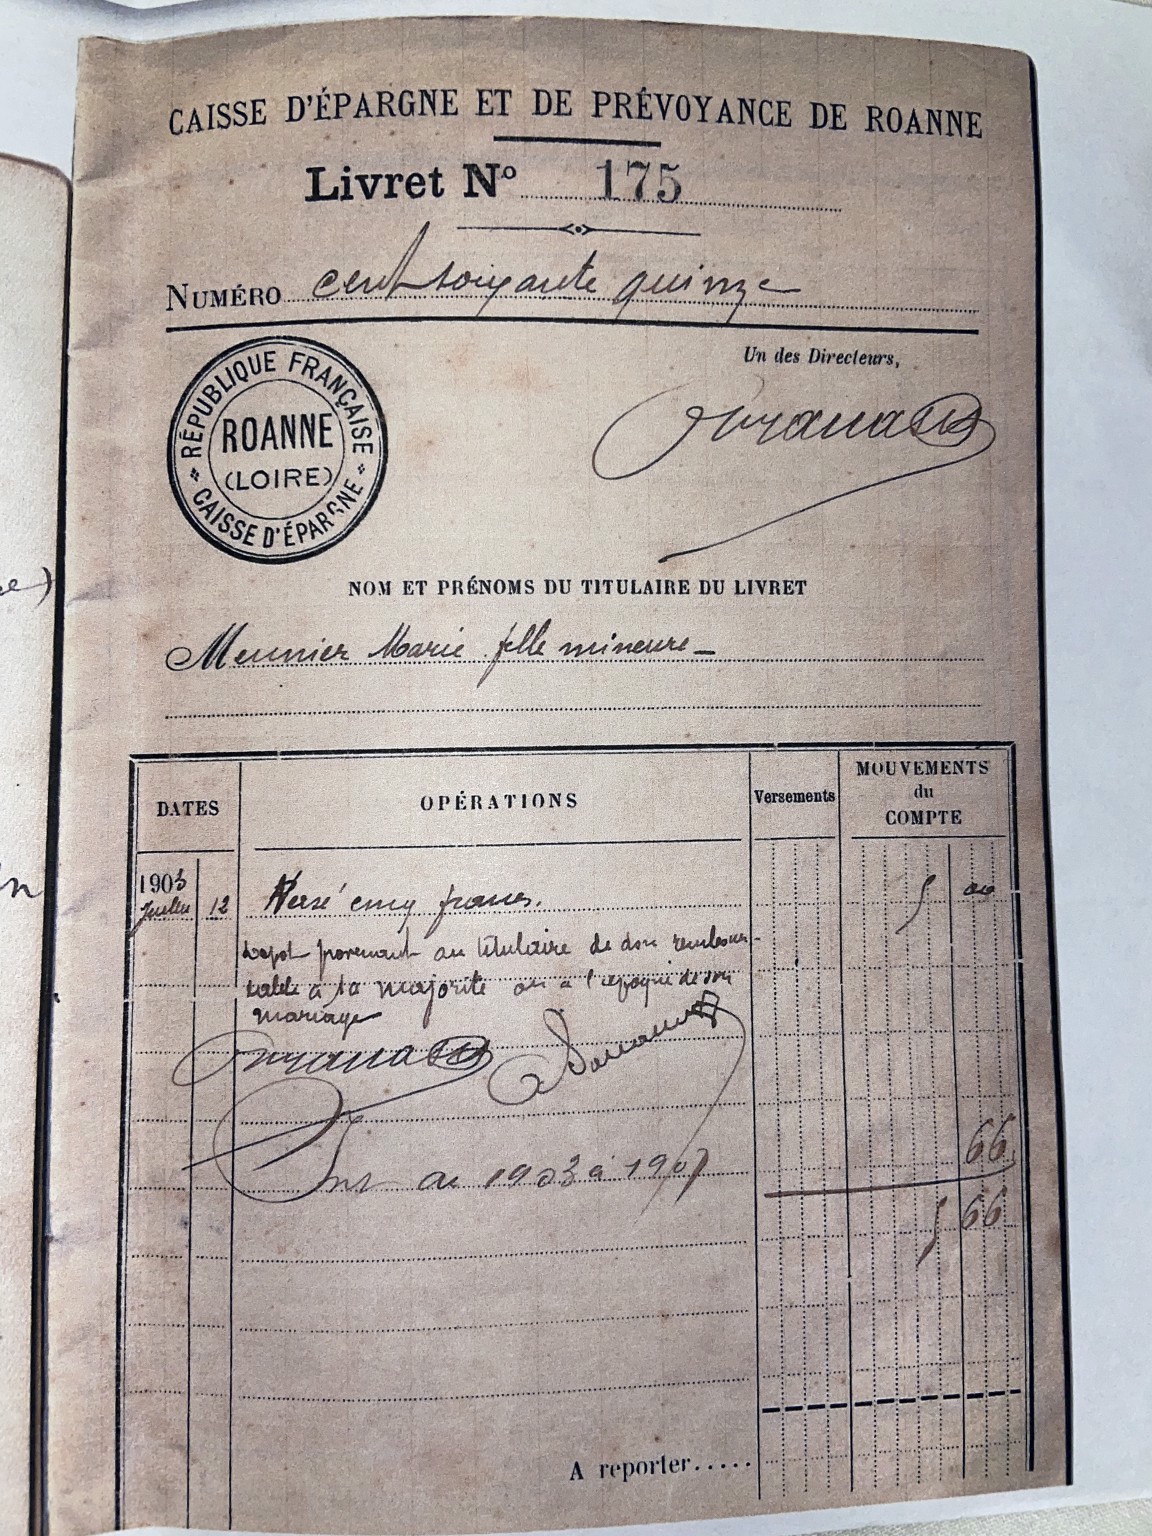 CAISSE D'ÉPARGNE ET DE PRÉVOYANCE DE ROANNE
Livret Nº 175
NUMÉRO cent soixante quinze
RÉPUBLIQUE FRANÇAISE
ROANNE
(LOIRE)
CAISSE D'ÉPARGNE
Un des Directeurs,
NOM ET PRÉNOMS DU TITULAIRE DU LIVRET
Meunier Marie fille mineure
DATES
OPÉRATIONS
Versements
MOUVEMENTS
du
COMPTE
1903
Juillet 12 Versé cinq francs. 5 00
Dépôt provenant au titulaire de don rembour-
sable à sa majorité ou à l'époque de son
mariage
66
Int de 1903 à 1907
5 66
A reporter.....
e)
n